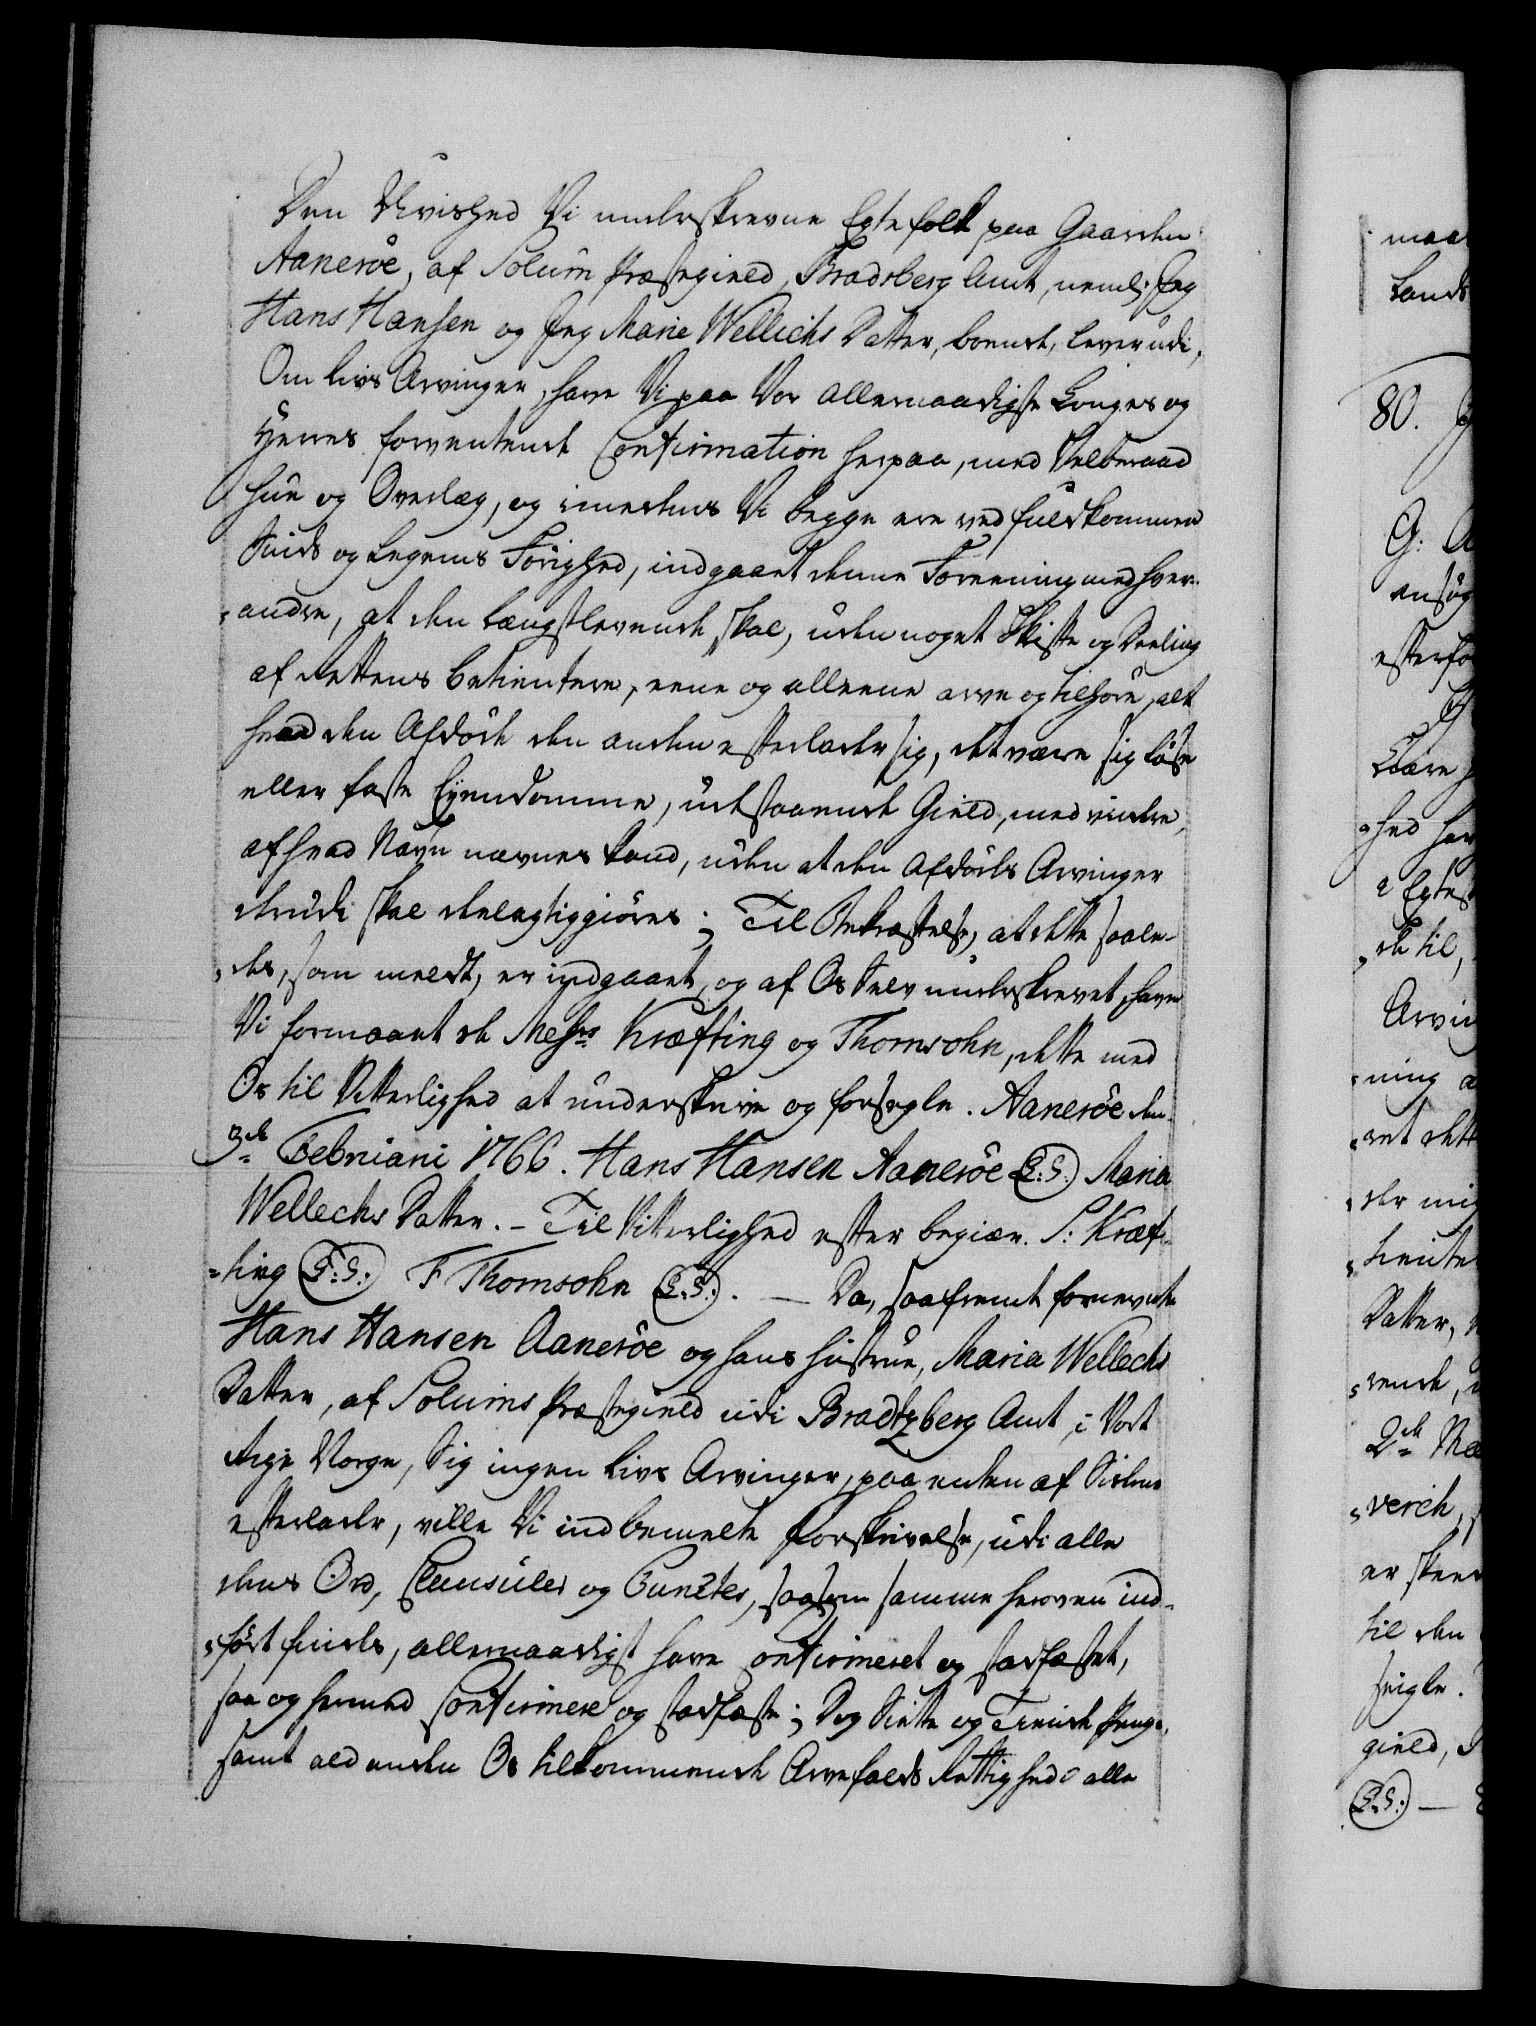 Den Uvished Vi underskrevne Egtefolk paa Gaarden
Aaneröe, af Solum Præstegield, Bradsberg Amt, neml: Jeg
Hans Hansen og Jeg Marie Wellichs Datter, boende, leve udi,
Om livs Arvinger, have Vi paa Vor allernaadigste Konges og
Herres forventende Confirmation herpaa, med Velberaad
Hue og Overlæg, og imedens Vi begge ere ved fuldkommen
Sinds og Legems Førighed, indgaaet denne Foreening med hver-
andre, at den længstlevende skal, uden noget Skifte og Deeling
af Rettens Betientere, eene og alleene arve og tilhöre, alt
hvad den Afdöde den anden efterlader sig, det være sig löse
eller faste Eyendomme, udestaaende Gield, med videre,
af hvad Navn nævnes kand, uden at den Afdödes Arvinger
derudi skal deelagtiggiöres; Til Bekræftelse, at dette saale-
des, som meldt, er indgaaet, og af Os Selv underskrevet, have
Vi formaaet de Messrs Kræfting og Thomsohn, dette med
Os til Vitterlighed at underskrive og forsegle. Aaneröe den
3de Februarii 1766. Hans Hansen Aaneröe (L.S.) Maria
Wellechs Datter. – Til Vitterlighed efter begiær. S: Kræf-
ting (L.S.) F Thomsohn (L.S.). — Da, saafremt fornevnte
Hans Hansen Aaneröe og hans Hustrue, Maria Wellechs
Datter, af Solums Præstegield udi Bradtzberg Amt, i Vort
Rige Norge, Sig ingen Livs Arvinger, paa enten af Siderne
efterlader, ville Vi indbemelte Forskrivelse, udi alle
dens Ord, Clausuler og Puncter, saasom samme heroven ind-
fört findes, allernaadigst have Confirmeret og stadfæstet,
saa og hermed Confirmere og stadfæste; Dog Siette og Tiende Penge,
samt ald anden Os tilkommende Arvefalds Rettighed i alle
maa
Lands
80.
G:
ansög
efterfo
hed
2 Egtef
de til,
Arvin
ning a
ret dett
der mig
tiente
Datter,
rende,
2de
verch,
er skee
til den
seigle.
gield,
(L.S.) —